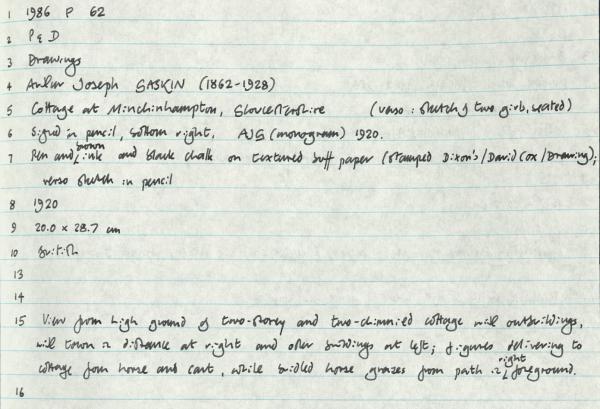 1 1986 P 62
2 P & D
3 Drawings
4 Arthur Joseph GASKIN (1862-1928)
5 Cottage at Minchinhampton, Gloucestershire (verso: sketch of two girls, seated)
6 Signed in pencil, bottom right, AJG (monogram) 1920.
7 Pen and brown ink and black chalk on textured buff paper (stamped Dixon's/David Cox/Drawing);
verso sketch in pencil
8 1920
9 20.0 x 28.7 cm
10 British
13
14
15 View from high ground of two-storey and two-chimnied cottage with outbuildings,
with town in distance at right and other buildings at left; figures delivering to
cottage from horse and cart, while bridled horse grazes from path in right foreground.
16